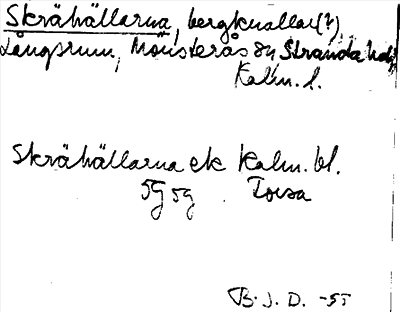 Skrähällarna, bergknallar(?),
Långsrum, Mönsterås sn, Stranda hd,
Kalm. l.
Skrähällarna ek Kalm. bl.
5G5g Torsa
B. J. D. -55